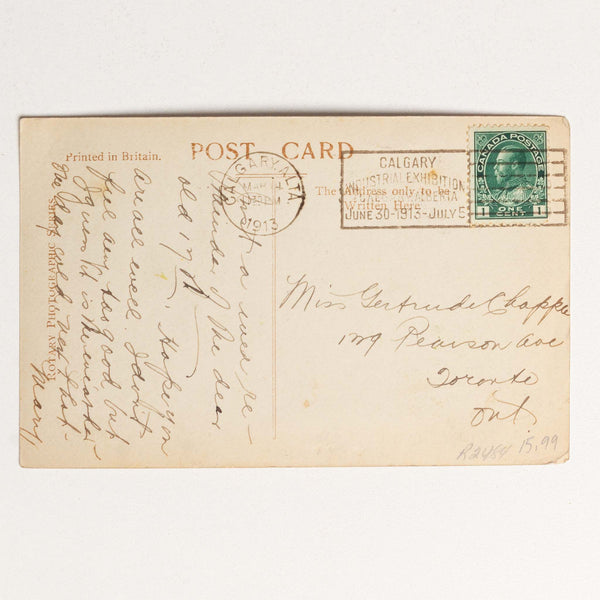 POST CARD
Printed in Britain.
The Address only to be
Written Here.
ROTARY PHOTOGRAPHIC SERIES.
CALGARY ALTA.
MAR
1913
CALGARY
INDUSTRIAL EXHIBITION
JUNE 30-1913-JULY 5
CANADA POSTAGE
1 ONE CENT 1
Just a wee re-
minder of the dear
old 17th. Hope you
are all well. I don't
feel any too good but
I guess it is the weather
The day cold very that
Mamy
Miss Gertrude Chapple
Pearson Ave
Toronto
Ont.
R2484 15.99